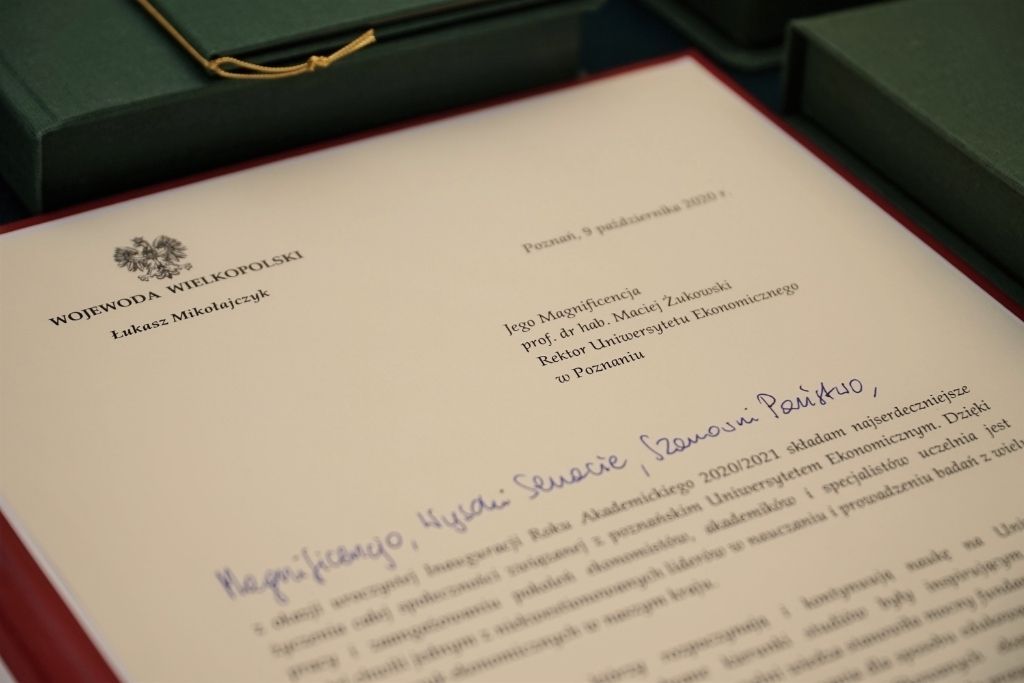 WOJEWODA WIELKOPOLSKI
Łukasz Mikołajczyk
Poznań, 9 października 2020 r.
Jego Magnificencja
prof. dr hab. Maciej Żukowski
Rektor Uniwersytetu Ekonomicznego
w Poznaniu
Magnificencjo, Wysoki Senacie, Szanowni Państwo,
z okazji uroczystej Inauguracji Roku Akademickiego 2020/2021 składam najserdeczniejsze
życzenia całej społeczności związanej z poznańskim Uniwersytetem Ekonomicznym. Dzięki
pracy i zaangażowaniu pokoleń ekonomistów, akademików i specjalistów uczelnia jest
chwili jednym z niekwestionowanych liderów w nauczaniu i prowadzeniu badań z wielu
ekonomicznych w naszym kraju.
rozpoczynają i kontynuują naukę na
kierunki studiów były inspirującym
wiedza stanowiła mocny
dla sposobu